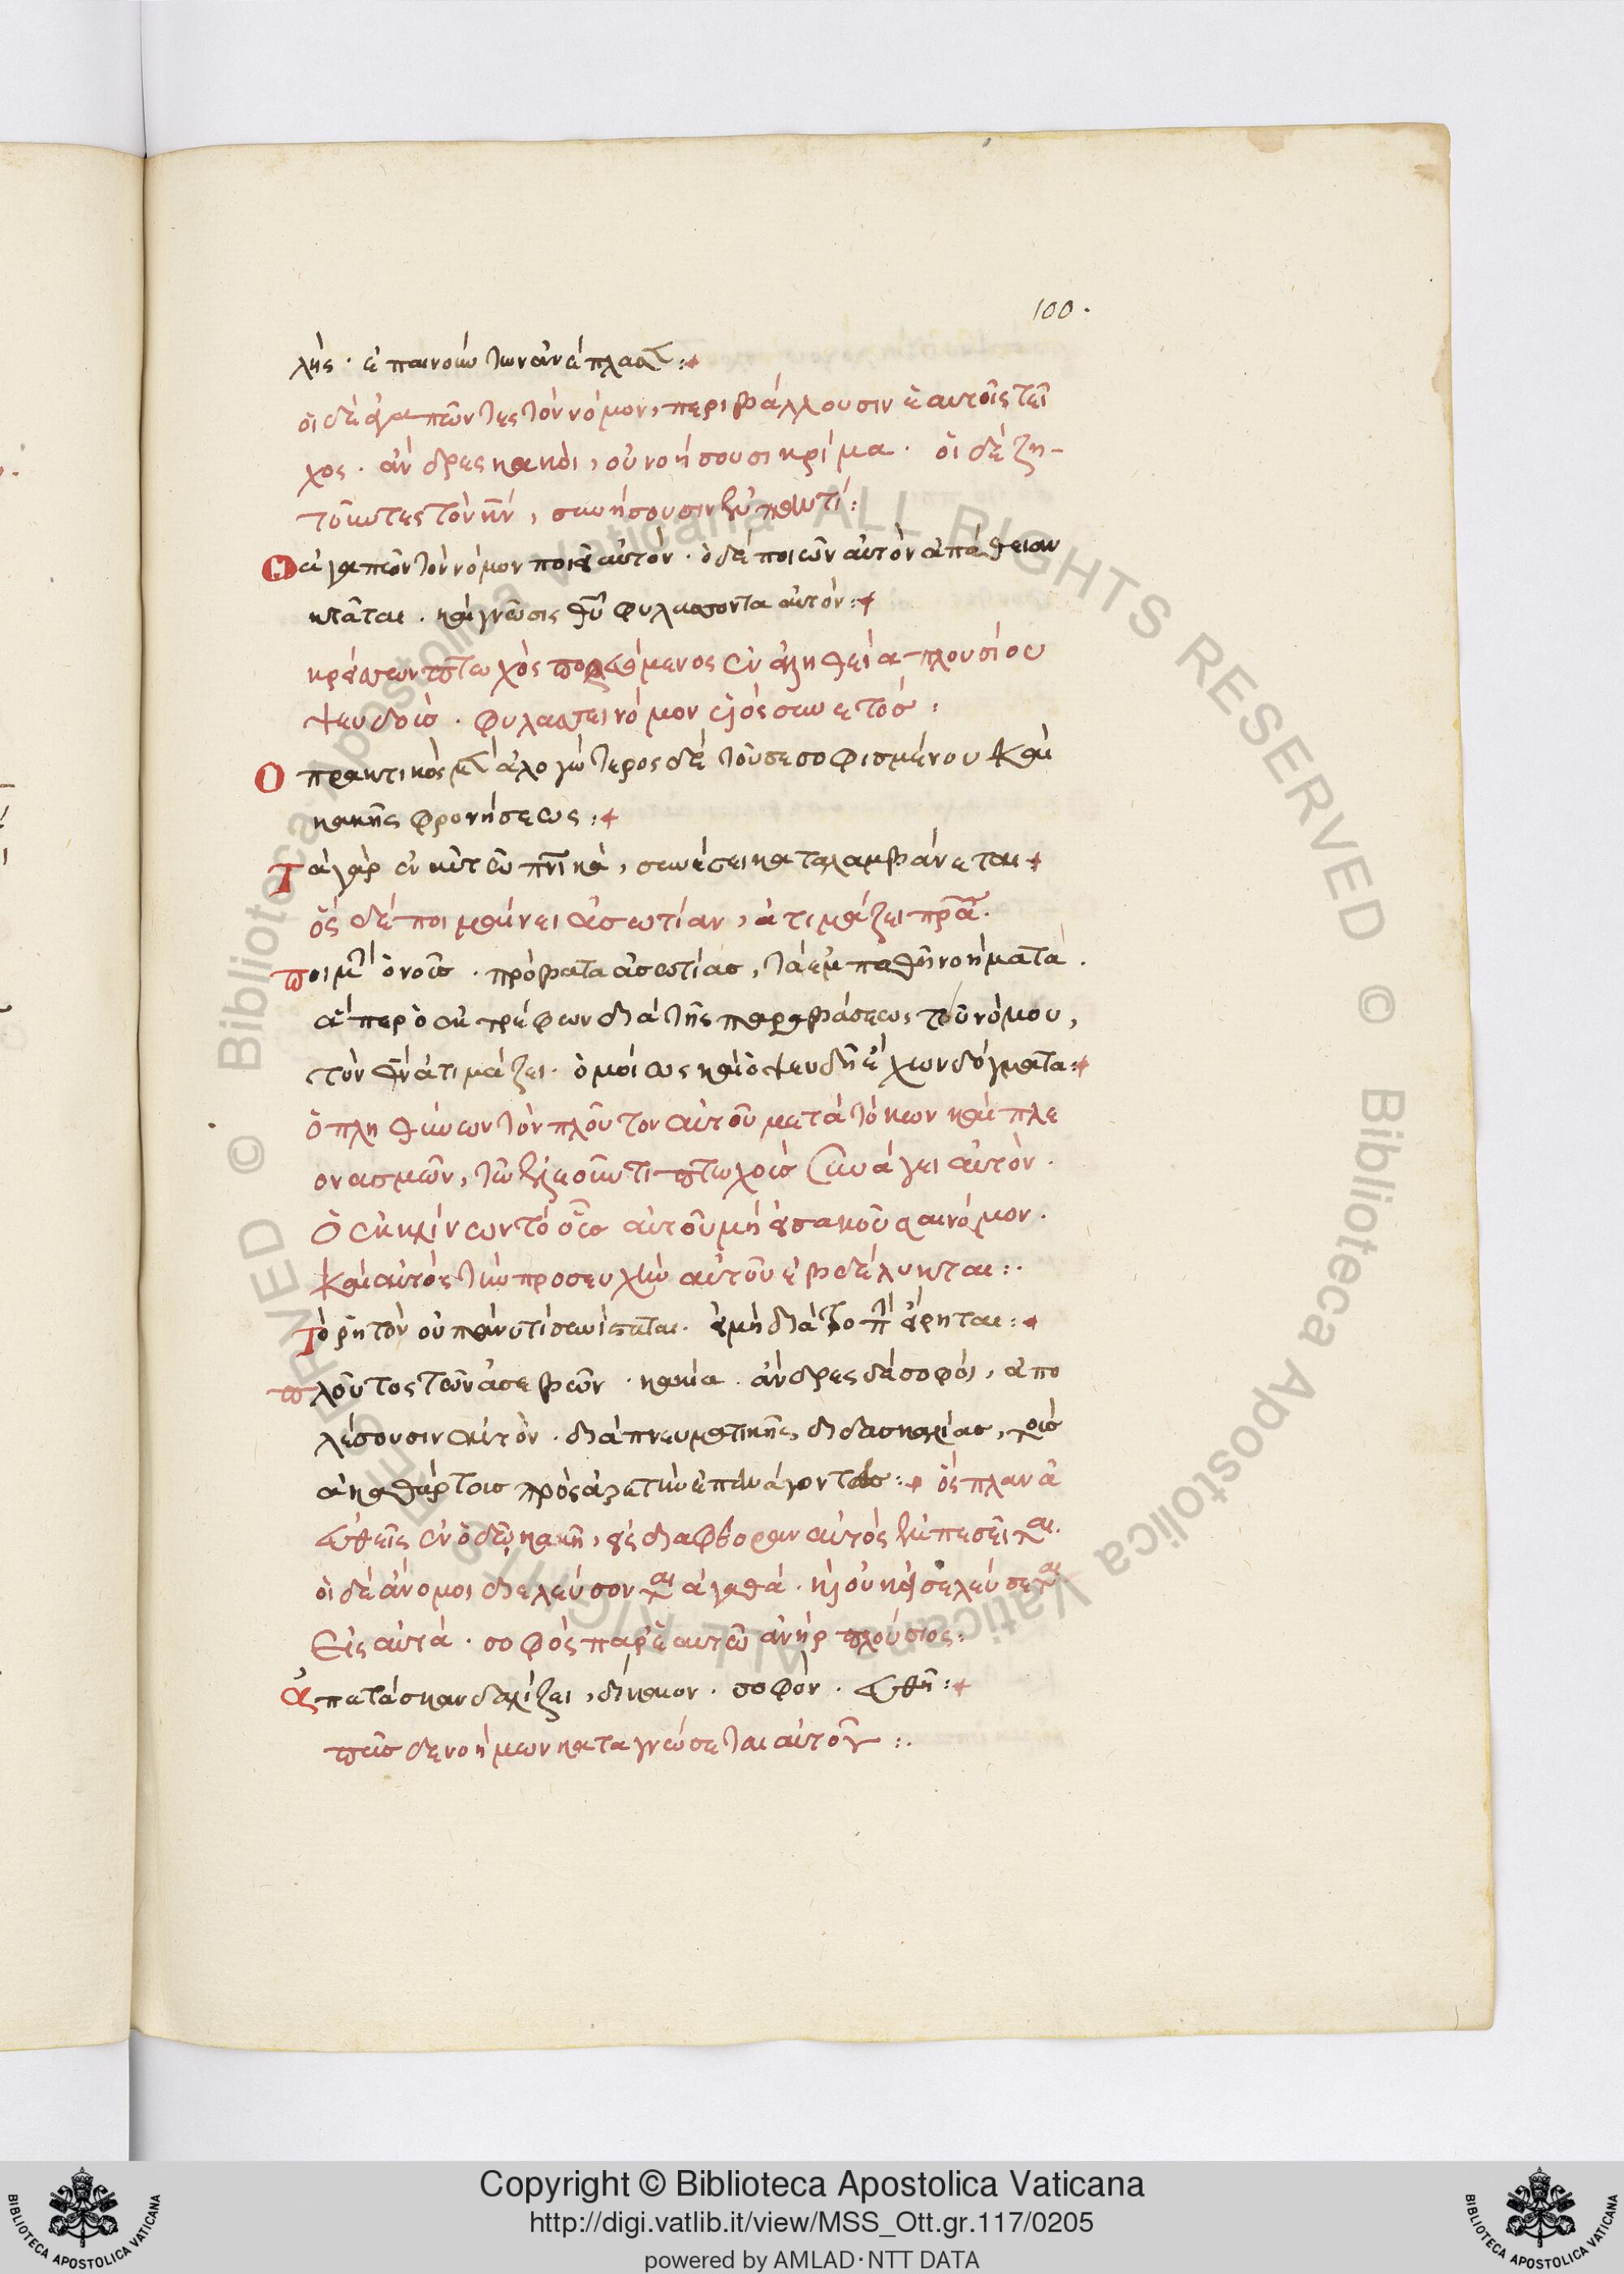 100.
λῆς · ἐπαινοῦν τὸν ἀνέπλασ :+
οἱ δὲ ἀγαπῶντες τὸν νόμον, περιβάλλουσιν ἑαυτοῖς τεῖ
χος · ἄνδρες κακοὶ, οὐ νοήσουσι κρίμα · οἱ δὲ ζη-
τοῦντες τὸν κν̄, συνήσουσιν ἐν παντί :
Ὁ ἀγαπῶν τὸν νόμον ποιεῖ αὐτόν · ὁ δὲ ποιῶν αὐτὸν ἀπάθειαν
κτᾶται · καὶ γνῶσις θῡ φυλάττοντα αὐτόν :+
κρείσσων πτωχὸς πορευόμενος ἐν ἀληθεία πλουσίου
ψευδοῦς · φυλάσσει νόμον υἱὸς συνετός :
Ὁ πρακτικὸς μὲν ἀλογώτερος δὲ τοῦ σεσοφισμένου καὶ
κακῆς φρονήσεως :+
Τὰ γὰρ ἐν αὐτῶ πνικὰ, συνέσει καταλαμβάνεται +
ὃς δὲ ποιμαίνει ἀσωτίαν, ἀτιμάζει πρ̄α ·
ποιμὴν ὁ νοῦς · πρόβατα ἀσωτίας, τὰ ἐμπαθῆ νοήματα ·
ἅπερ ὁ ἐκτρέφων διὰ τῆς παραβάσεως τοῦ νόμου,
τὸν θν̄ ἀτιμάζει · ὁμοίως καὶ ὁ ψευδῆ ἔχων δόγματα :+
Ὁ πληθύνων τὸν πλοῦτον αὐτοῦ μετὰ τόκων καὶ πλε
ονασμῶν, τῶ ἐλεοῦντι πτωχοὺς συνάγει αὐτόν ·
Ὁ ἐκκλίνων τὸ οὖς αὐτοῦ μὴ εἰσακοῦσαι νόμον ·
καὶ αὐτὸς τὴν προσευχὴν αὐτοῦ ἐβδέλυκται :·
Τὸ ῥητὸν οὐ παντὶ συνίσταται · εἰ μὴ διὰ τὸ πλ εἴρηται :+
πλοῦτος τῶν ἀσεβῶν · κακία · ἄνδρες δὲ σοφοὶ, ἀπο
λέσουσιν αὐτόν · διὰ πνευματικῆς διδασκαλίας, τοὺς
ἀκαθάρτους πρὸς ἀρετὴν ἐπανάγοντες :+ ὃς πλανᾶ
εὐθεῖς ἐν ὁδῷ κακῆ, εἰς διαφθορὰν αὐτὸς ἐμπεσεῖται ·
οἱ δὲ ἄνομοι διελεύσονται ἀγαθά · καὶ οὐκ εἰσελεύσεται
εἰς αὐτά · σοφὸς παρ' ἑαυτῶ ἀνὴρ πλούσιος :
ἀπατᾶ σκανδαλίζει, δίκαιον · σοφόν · εὐθῆ :+
παῖς δὲ νοήμων καταγνώσεται αὐτοῦ :·
Copyright © Biblioteca Apostolica Vaticana
http://digi.vatlib.it/view/MSS_Ott.gr.117/0205
powered by AMLAD·NTT DATA
BIBLIOTECA APOSTOLICA VATICANA
BIBLIOTECA APOSTOLICA VATICANA
© Biblioteca Apostolica Vaticana ALL RIGHTS RESERVED © Biblioteca Apostolica Vaticana ALL RIGHTS RESERVED